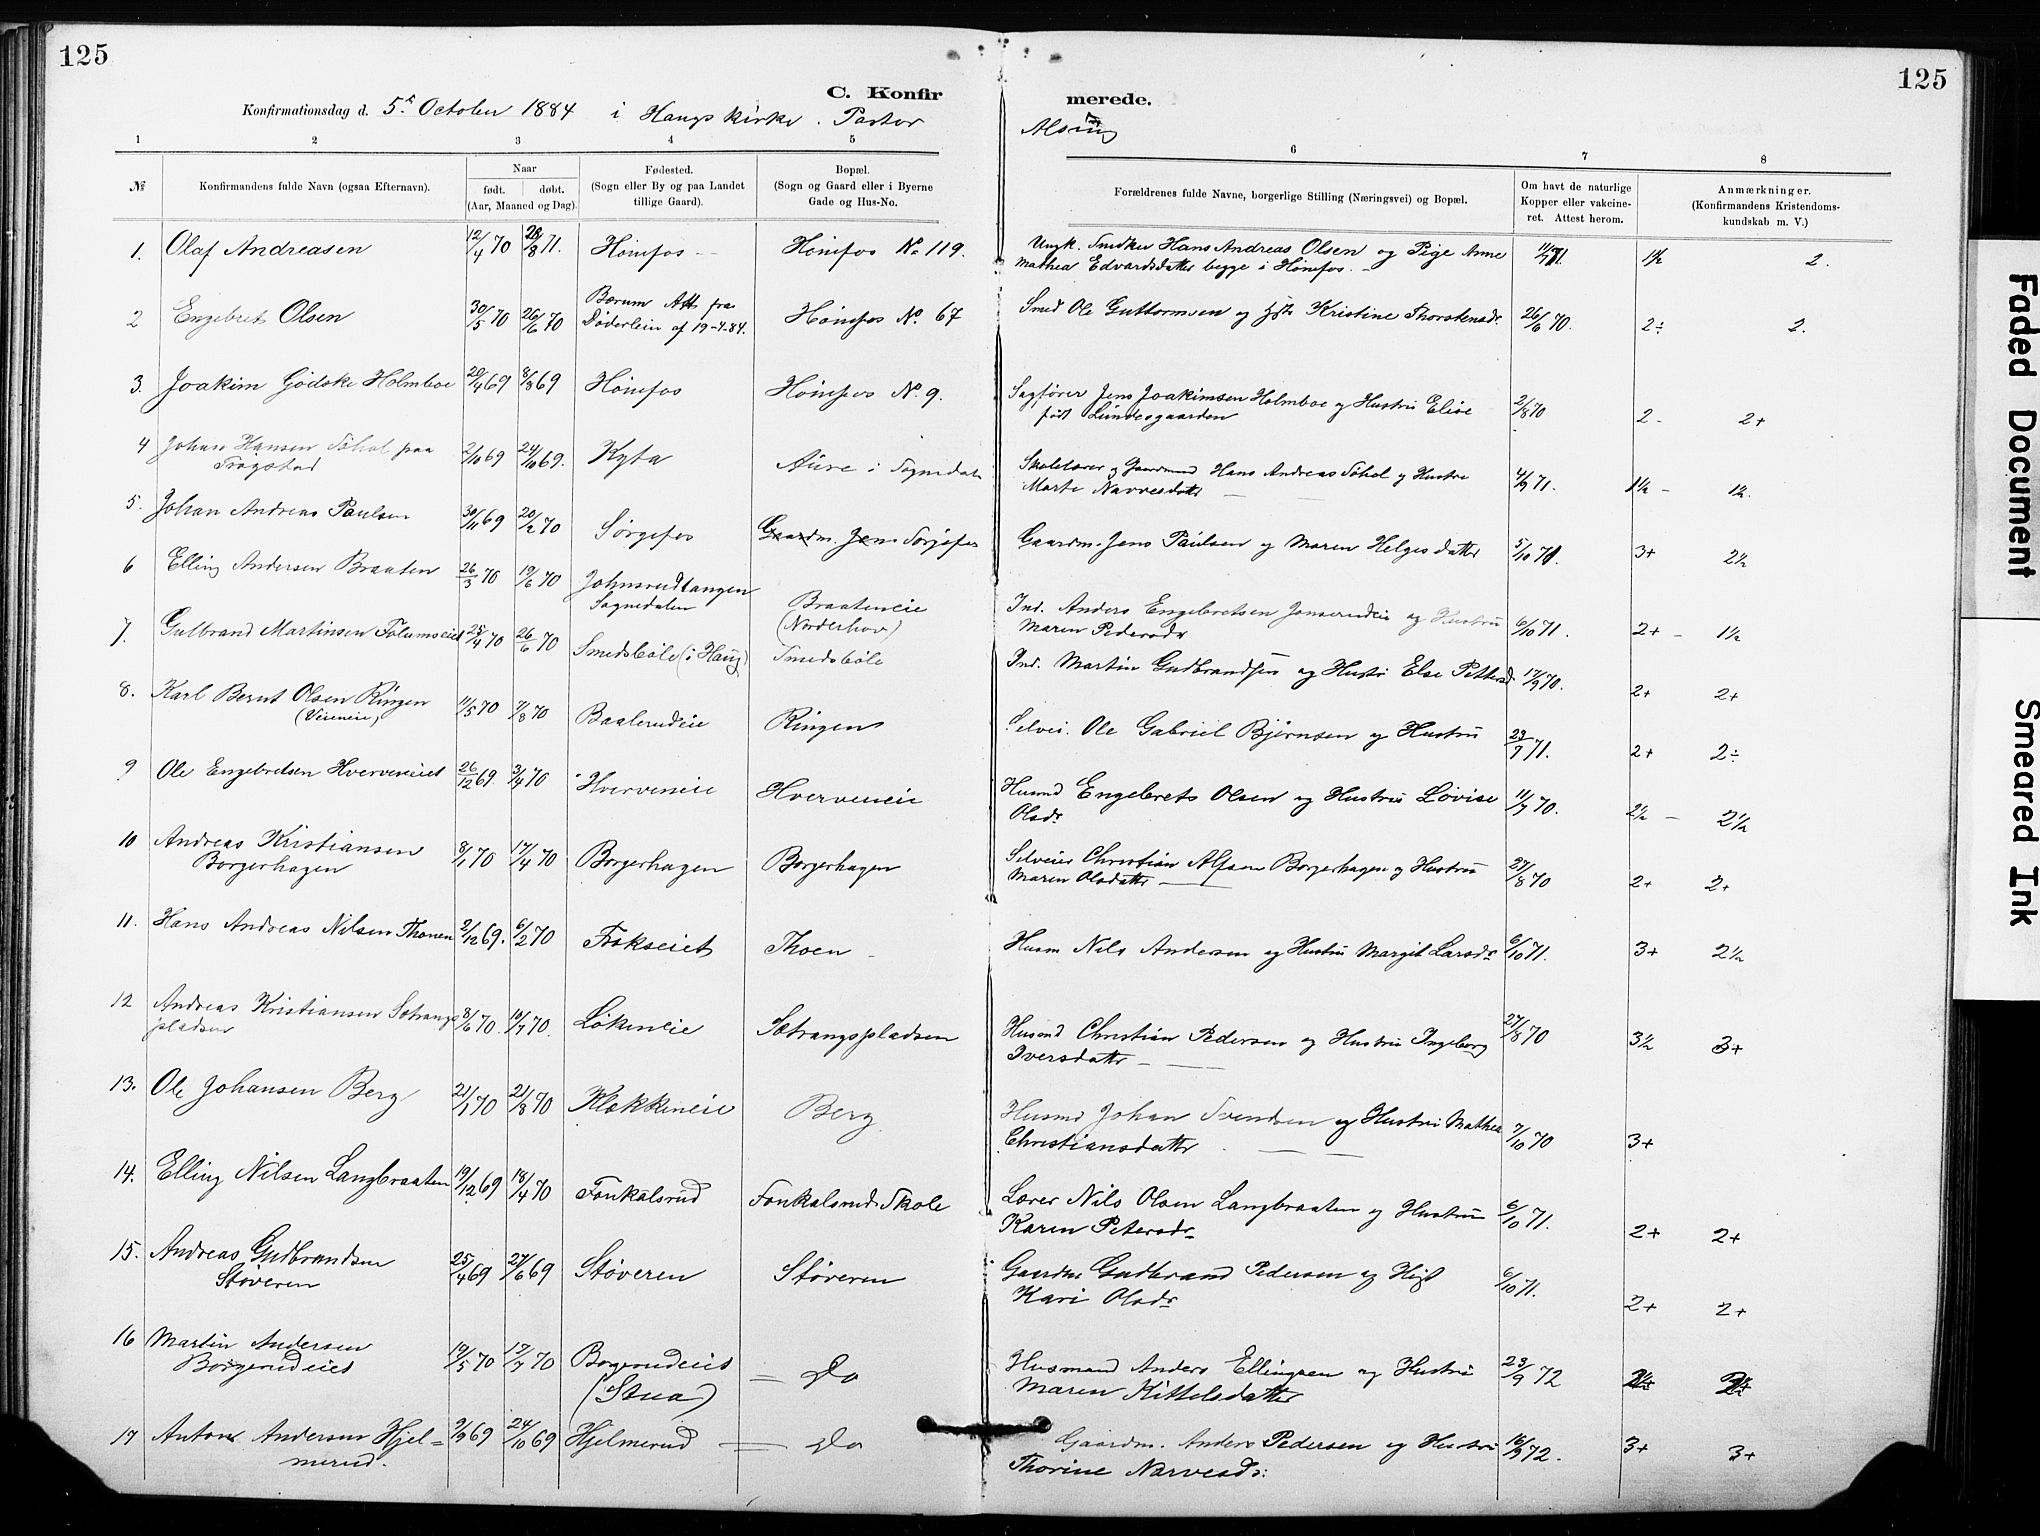 125
125
C. Konfir
merede.
Konfirmationsdag d. 5te October 1884 i Haugs kirke. Pastor
Alsing
1 2 3 4 5 6 7 8
№ Konfirmandens fulde Navn (ogsaa Efternavn). Naar født. døbt. (Aar, Maaned og Dag). Fødested. (Sogn eller By og paa Landet tillige Gaard). Bopæl. (Sogn og Gaard eller i Byerne Gade og Hus-No. Forældrenes fulde Navne, borgerlige Stilling (Næringsvei) og Bopæl. Om havt de naturlige Kopper eller vakcineret. Attest herom. Anmærkninger. (Konfirmandens Kristendomskundskab m. V.)
1. Olaf Andreasen 12/4 70 28/8 71. Hønefos Hønefos No 119. Ungk. Snedker Hans Andreas Olsen og Pige Anne 1½ 2.
Mathea Edvardsdatter begge i Hønefos.
2 Engebret Olsen 30/5 70 26/6 70 Bærum Att. fra Døderlein af 19-4.84. Hønefos No. 67 Smed Ole Guttormsen og Kristine Thorstensdr 26/6 70. 2÷ 2.
3 Joakim Gødske Holmboe 20/4 69 8/8 69 Hønefos Hønefos No. 9. Sagfører Jens Joakimsen Holmboe og Hustru Elise 2/8 70 2- 2+
født Lundesgaarden
4 Johan Hansen Søhol paa Trøgstad 2/10 69 24/10 69. Kyta Aure i Sognedal Skolelærer og Gaardmand Hans Andreas Søhol og Hustru 4/9 71. 1½ - 1½.
Marte Narvesdatter
5. Johan Andreas Paulsen 30/11 69 20/2 70 Sørgefos Gaardm. Jens Sørgefos Gaardm. Jens Paulsen og Maren Helgesdatter 5/10 71. 3+ 2½
6 Elling Andersen Braaten 26/3 70 19/6 70 Johnsrudtangen Sognedalen Braateneie (Norderhov) Ind. Anders Engebretsen Jonsrudeie og Hustru 6/10 71. 2+ - 1½
Maren Pedersdr
7. Gulbrand Martinsen Tolumseiet 25/4 70 26/6 70 Smedsbøle (i Haug) Smedsbøle Ind. Martin Gudbrandsen og Hustr. Else Pettersd. 17/9 70. 2+ 2+
8. Karl Bernt Olsen Ringen (Veieneie) 11/5 70 7/8 70 Baalerudeie Ringen Selvei. Ole Gabriel Bjørnsen og Hustru 23/7 71. 2+ 2÷
9 Ole Engebretsen Hverveneiet 26/12 69. 3/4 70 Hverveneie Hverveneie Husmd Engebrets Olsen og Hustru Lovise 11/9 70. 2½ - 2½
Olsdr
10 Andreas Kristiansen Borgerhagen 8/1 70 17/4 70 Borgerhagen Borgerhagen Selveier Christian Alfsen Borgerhagen og Hustru 27/8 70 2+ 2+
Maren Olsdatter
11. Hans Andreas Nilsen Thonen 2/12 69. 6/2 70 Trøkseiet Thoen Husm Nils Andersen og Hustru Margit Larsdr 6/10 71. 3+ 2½
12 Andreas Kristiansen Sætrangspladsen 8/6 70. 10/7 70. Løkeneie Sætrangspladsen Husmd Christian Pedersen og Hustru Ingeborg 27/8 70 3½ 3+
Iversdatter
13. Ole Johansen Berg 21/1 70 21/8 70 Klækkeneie Berg Husmd Johan Svendsen og Hustru Mathea 7/10 70 3+
Christiansdatter
14. Elling Nilsen Langbraaten 19/12 69 18/4 70 Fonkalsrud Fonkalsrud Skole Lærer Nils Olsen Langbraaten og Hustru 6/10 71. 2+ 2+
Karen Petersdr
15. Andreas Gudbrandsen Støveren 25/4 69 27/6 69 Støveren Støveren Gaardm Gudbrand Pedersen og Hust 6/10 71. 2+ 2+
Kari Olsdr
16 Martin Andersen Borgerudeiet 19/5 70 17/7 70 Borgerudeiet (Stua) Do Husmand Anders Ellingsen og Hustru 23/9 72
Maren Kittelsdatter
17 Anton Andersen Hjelmerud. 9/9 69 24/10 69 Hjelmerud Do Gaardm. Anders Pedersen og Hustru 16/9 72. 3+ 3+
Thorine Narvesd:
Faded Document
Smeared Ink